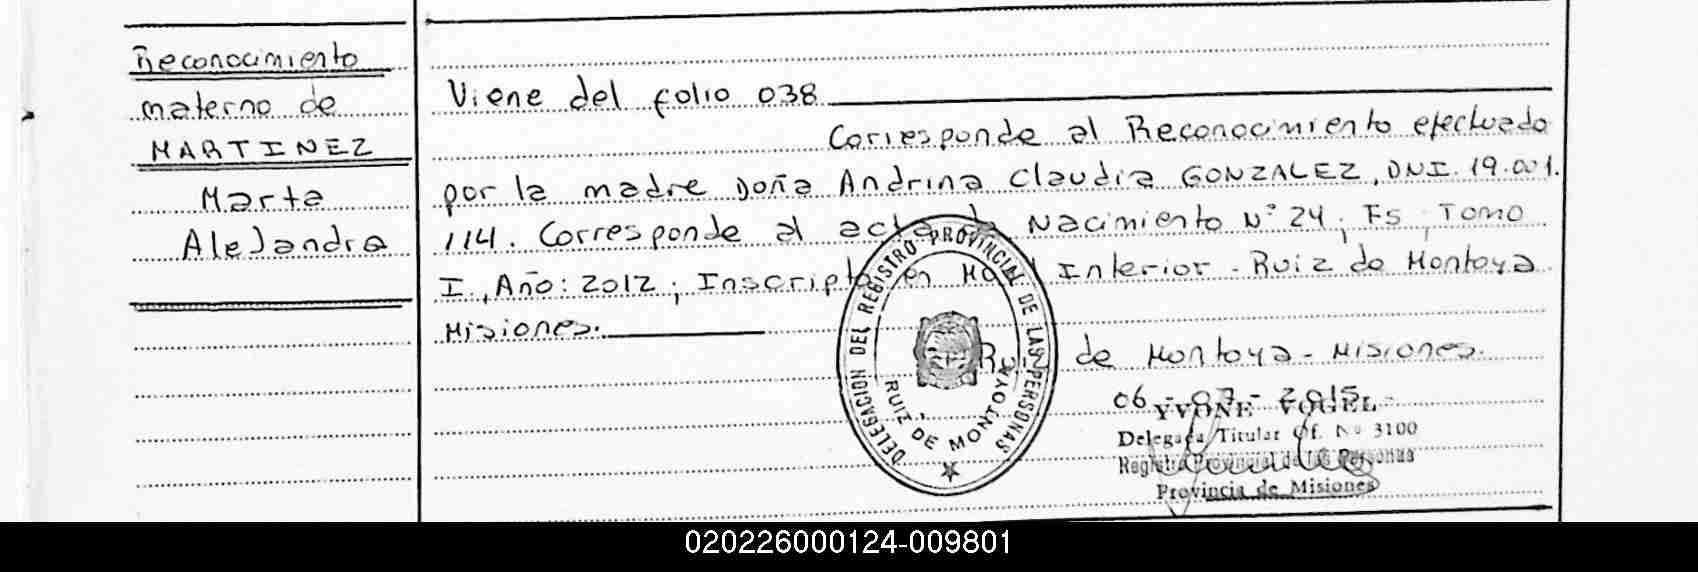 Reconocimiento
materno de
MARTINEZ
Marta
Alejandra
Viene del folio 038
Corresponde al Reconocimiento efectuado
por la madre Doña Andrina Claudia GONZALEZ, DNI. 19.001.
114. Corresponde al acta de Nacimiento N° 24, Fs, Tomo
I, Año: 2012; Inscripto en Interior - Ruiz de Montoya
Misiones.
R de Montoya - Misiones.
06 - 07 - 2015 -
DELEGACION DEL REGISTRO PROVINCIAL DE LAS PERSONAS
RUIZ DE MONTOYA
YVONE VOGEL
Delegada Titular Of. No 3100
Registro Provincial de las Personas
Provincia de Misiones
020226000124-009801